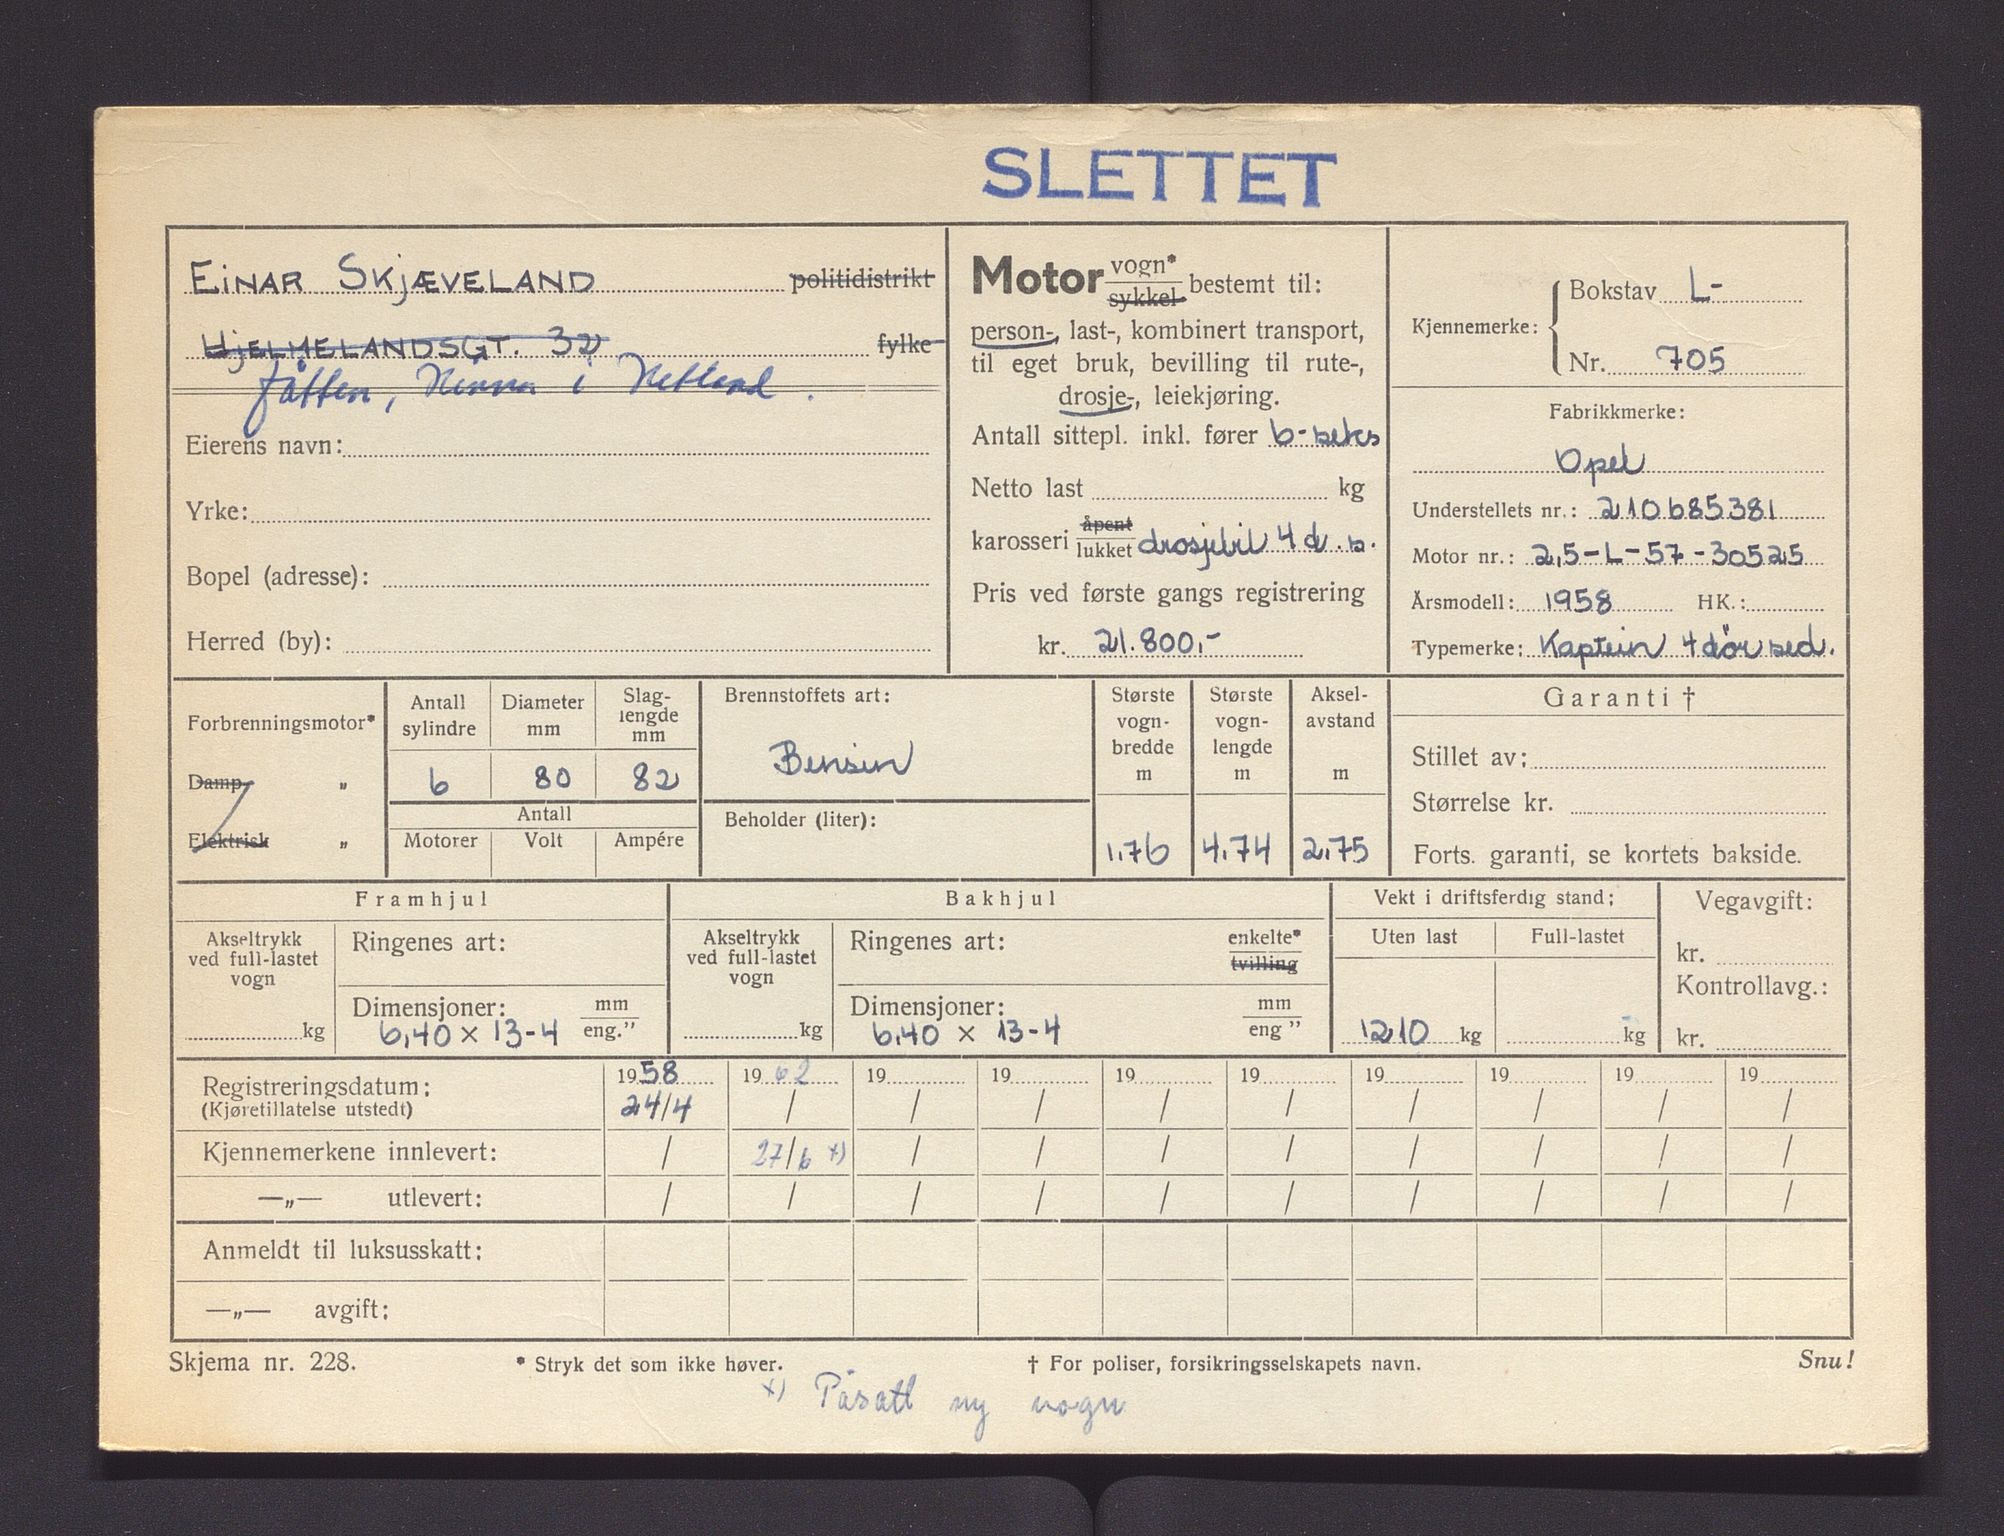 SLETTET
EINAR SKJÆVELAND politidistrikt
HJELMELANDSGT. 32 fylke
Jåtten, i Hetland.
Eierens navn:
Yrke:
Bopel (adresse):
Herred (by):
Motor vogn* / sykkel bestemt til:
person-, last-, kombinert transport,
til eget bruk, bevilling til rute-,
drosje-, leiekjøring.
Antall sittepl. inkl. fører 6-seter
Netto last kg
karosseri åpent / lukket drosjebil 4 d. s.
Pris ved første gangs registrering
kr. 21.800,-
Kjennemerke:
Bokstav L-
Nr. 705
Fabrikkmerke:
Opel
Understellets nr.: 210685381
Motor nr.: 2,5-L-57-30525
Årsmodell: 1958 HK.:
Typemerke: Kaptein 4 dör sed.
Forbrenningsmotor*
Damp „
Elektrisk „
Antall sylindre
6
Diameter mm
80
Slag-lengde mm
82
Antall
Motorer Volt Ampére
Brennstoffets art:
Bensin
Beholder (liter):
Største vogn-bredde m
1,76
Største vogn-lengde m
4,74
Aksel-avstand m
2,75
Garanti †
Stillet av:
Størrelse kr.
Forts. garanti, se kortets bakside.
Framhjul
Akseltrykk ved full-lastet vogn
kg
Ringenes art:
Dimensjoner: mm
6,40 × 13-4 eng.”
Bakhjul
Akseltrykk ved full-lastet vogn
kg
Ringenes art: enkelte* / tvilling
Dimensjoner: mm
6,40 × 13-4 eng ”
Vekt i driftsferdig stand:
Uten last Full-lastet
1210 kg kg
Vegavgift:
kr.
Kontrollavg.:
kr.
Registreringsdatum: 1958 1962 19 19 19 19 19 19 19 19
(Kjøretillatelse utstedt) 24/4 / / / / / / / / /
Kjennemerkene innlevert: / 27/6 x) / / / / / / / /
—„— utlevert: / / / / / / / / / /
Anmeldt til luksusskatt:
—„— avgift:
Skjema nr. 228. * Stryk det som ikke høver. † For poliser, forsikringsselskapets navn. Snu!
x) Påsatt ny vogn